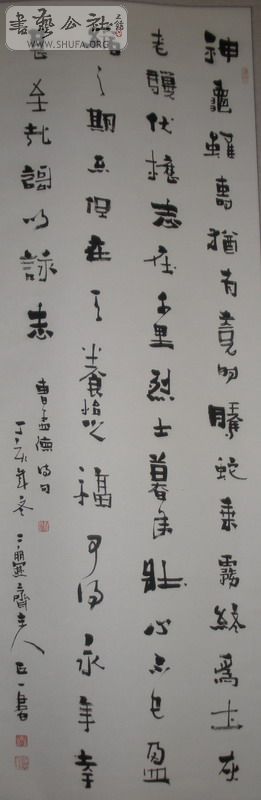 書藝公社
WWW.SHUFA.ORG
神龜雖壽猶有竟時騰蛇乘霧終爲土灰
老驥伏櫪志在千里烈士暮年壯心不已盈
縮之期不但在天養怡之福可得永年幸
甚至哉謌以詠志
曹孟德詩句
丁亥歲冬 齋主人 書